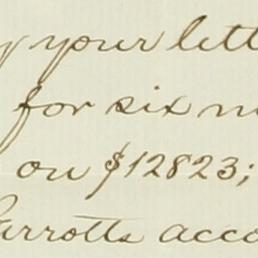 y your lett
for six m
on $12823;
arrotts acco